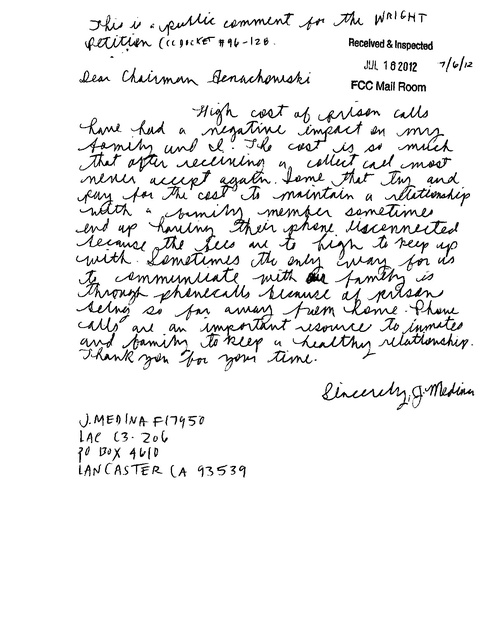 This is a public comment for the WRIGHT
Petition (CC DOCKET #96-128.
Received & Inspected
JUL 16 2012
7/6/12
FCC Mail Room
Dear Chairman Genachowski
High cost of prison calls
have had a negative impact on my
family and I. The cost is so much
that after receiving a collect call most
never accept again. Some that try and
pay for the cost to maintain a relationship
with a family member sometimes
end up having their phone disconnected
because the fees are to high to keep up
with. Sometimes the only way for us
to communicate with our family is
through phonecalls because of prison
being so far away from home. Phone
calls are an important resource to inmates
and family to keep a healthy relationship.
Thank you for your time.
Sincerely, J. Medina
J. MEDINA F17950
LAC C3-206
PO BOX 4610
LANCASTER CA 93539